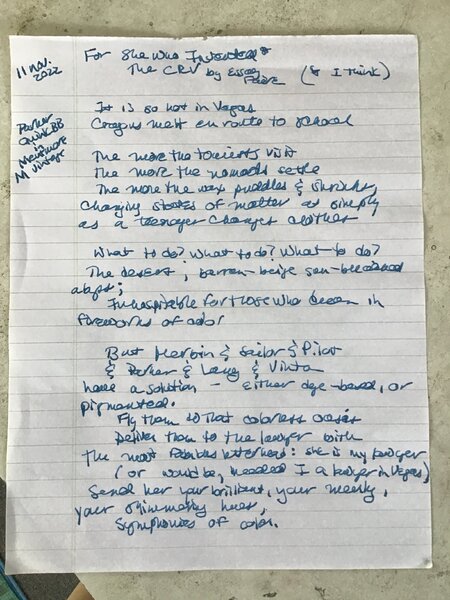 11 Nov.
2022
For She Who Invented
The CRV by Essay
Faire
(& I think)
Parker
Quink BB
in
Mentmore
M vintage
It is so hot in Vegas
Crayons melt en route to school
The more the tourists visit
The more the nomads settle
The more the wax puddles & shrinks,
changing states of matter as simply
as a teenager changes clothes
What to do? What to do? What to do?
The desert, barren-beige sun-bleached
abyss;
Inhospitable for those who dream in
fireworks of color
But Herbin & Sailor & Pilot
& Parker & Lamy & Vinta
have a solution – either dye-based, or
pigmented.
Fly them to that colorless oasis
Deliver them to the lawyer with
the most fabulous letterhead: she is my lawyer
(or would be, needed I a lawyer in Vegas)
Send her your brilliant, your meek,
your shimmering hues,
Symphonies of color.